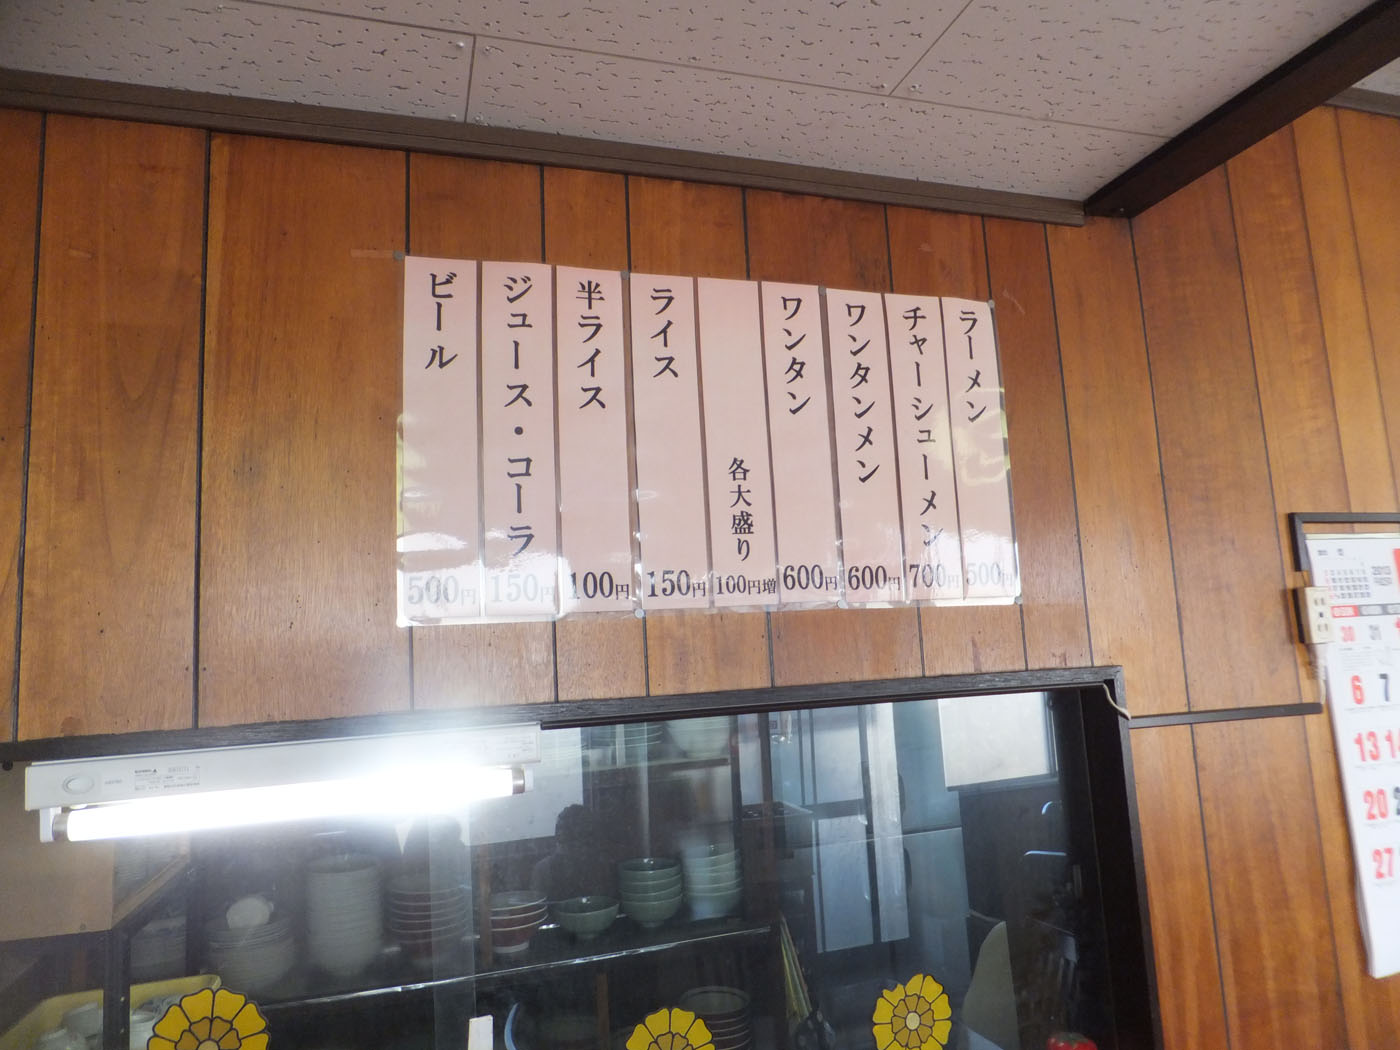 ラーメン
500円
チャーシューメン
700円
ワンタンメン
600円
ワンタン
600円
各大盛り
100円増
ライス
150円
半ライス
100円
ジュース・コーラ
150円
ビール
500円
2013
30 31
6 7
13
20
27